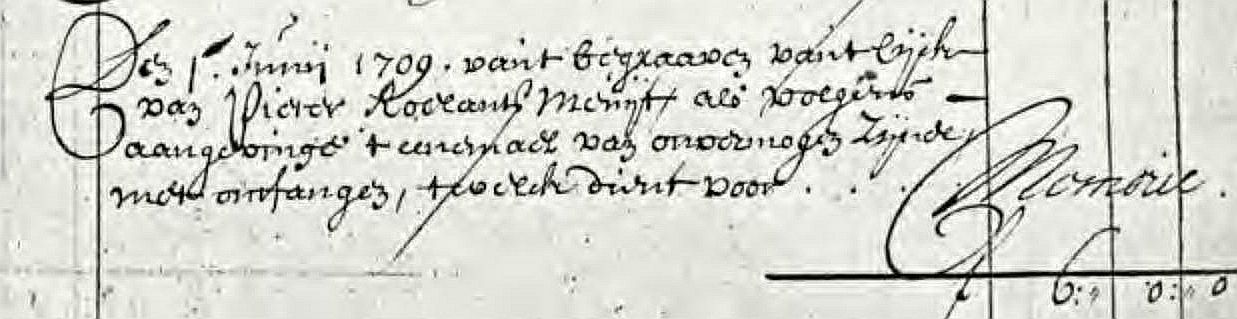 Den 1.e Junij 1709. vant begraaven vant Lijck
van Pieter Roelants Meuijt, als volgens
aangevinge t eenemael van onvermogen zijnde
niet ontfangen, t welck dient voor . . . . Memorie.
f 6:,, 0:,, 0